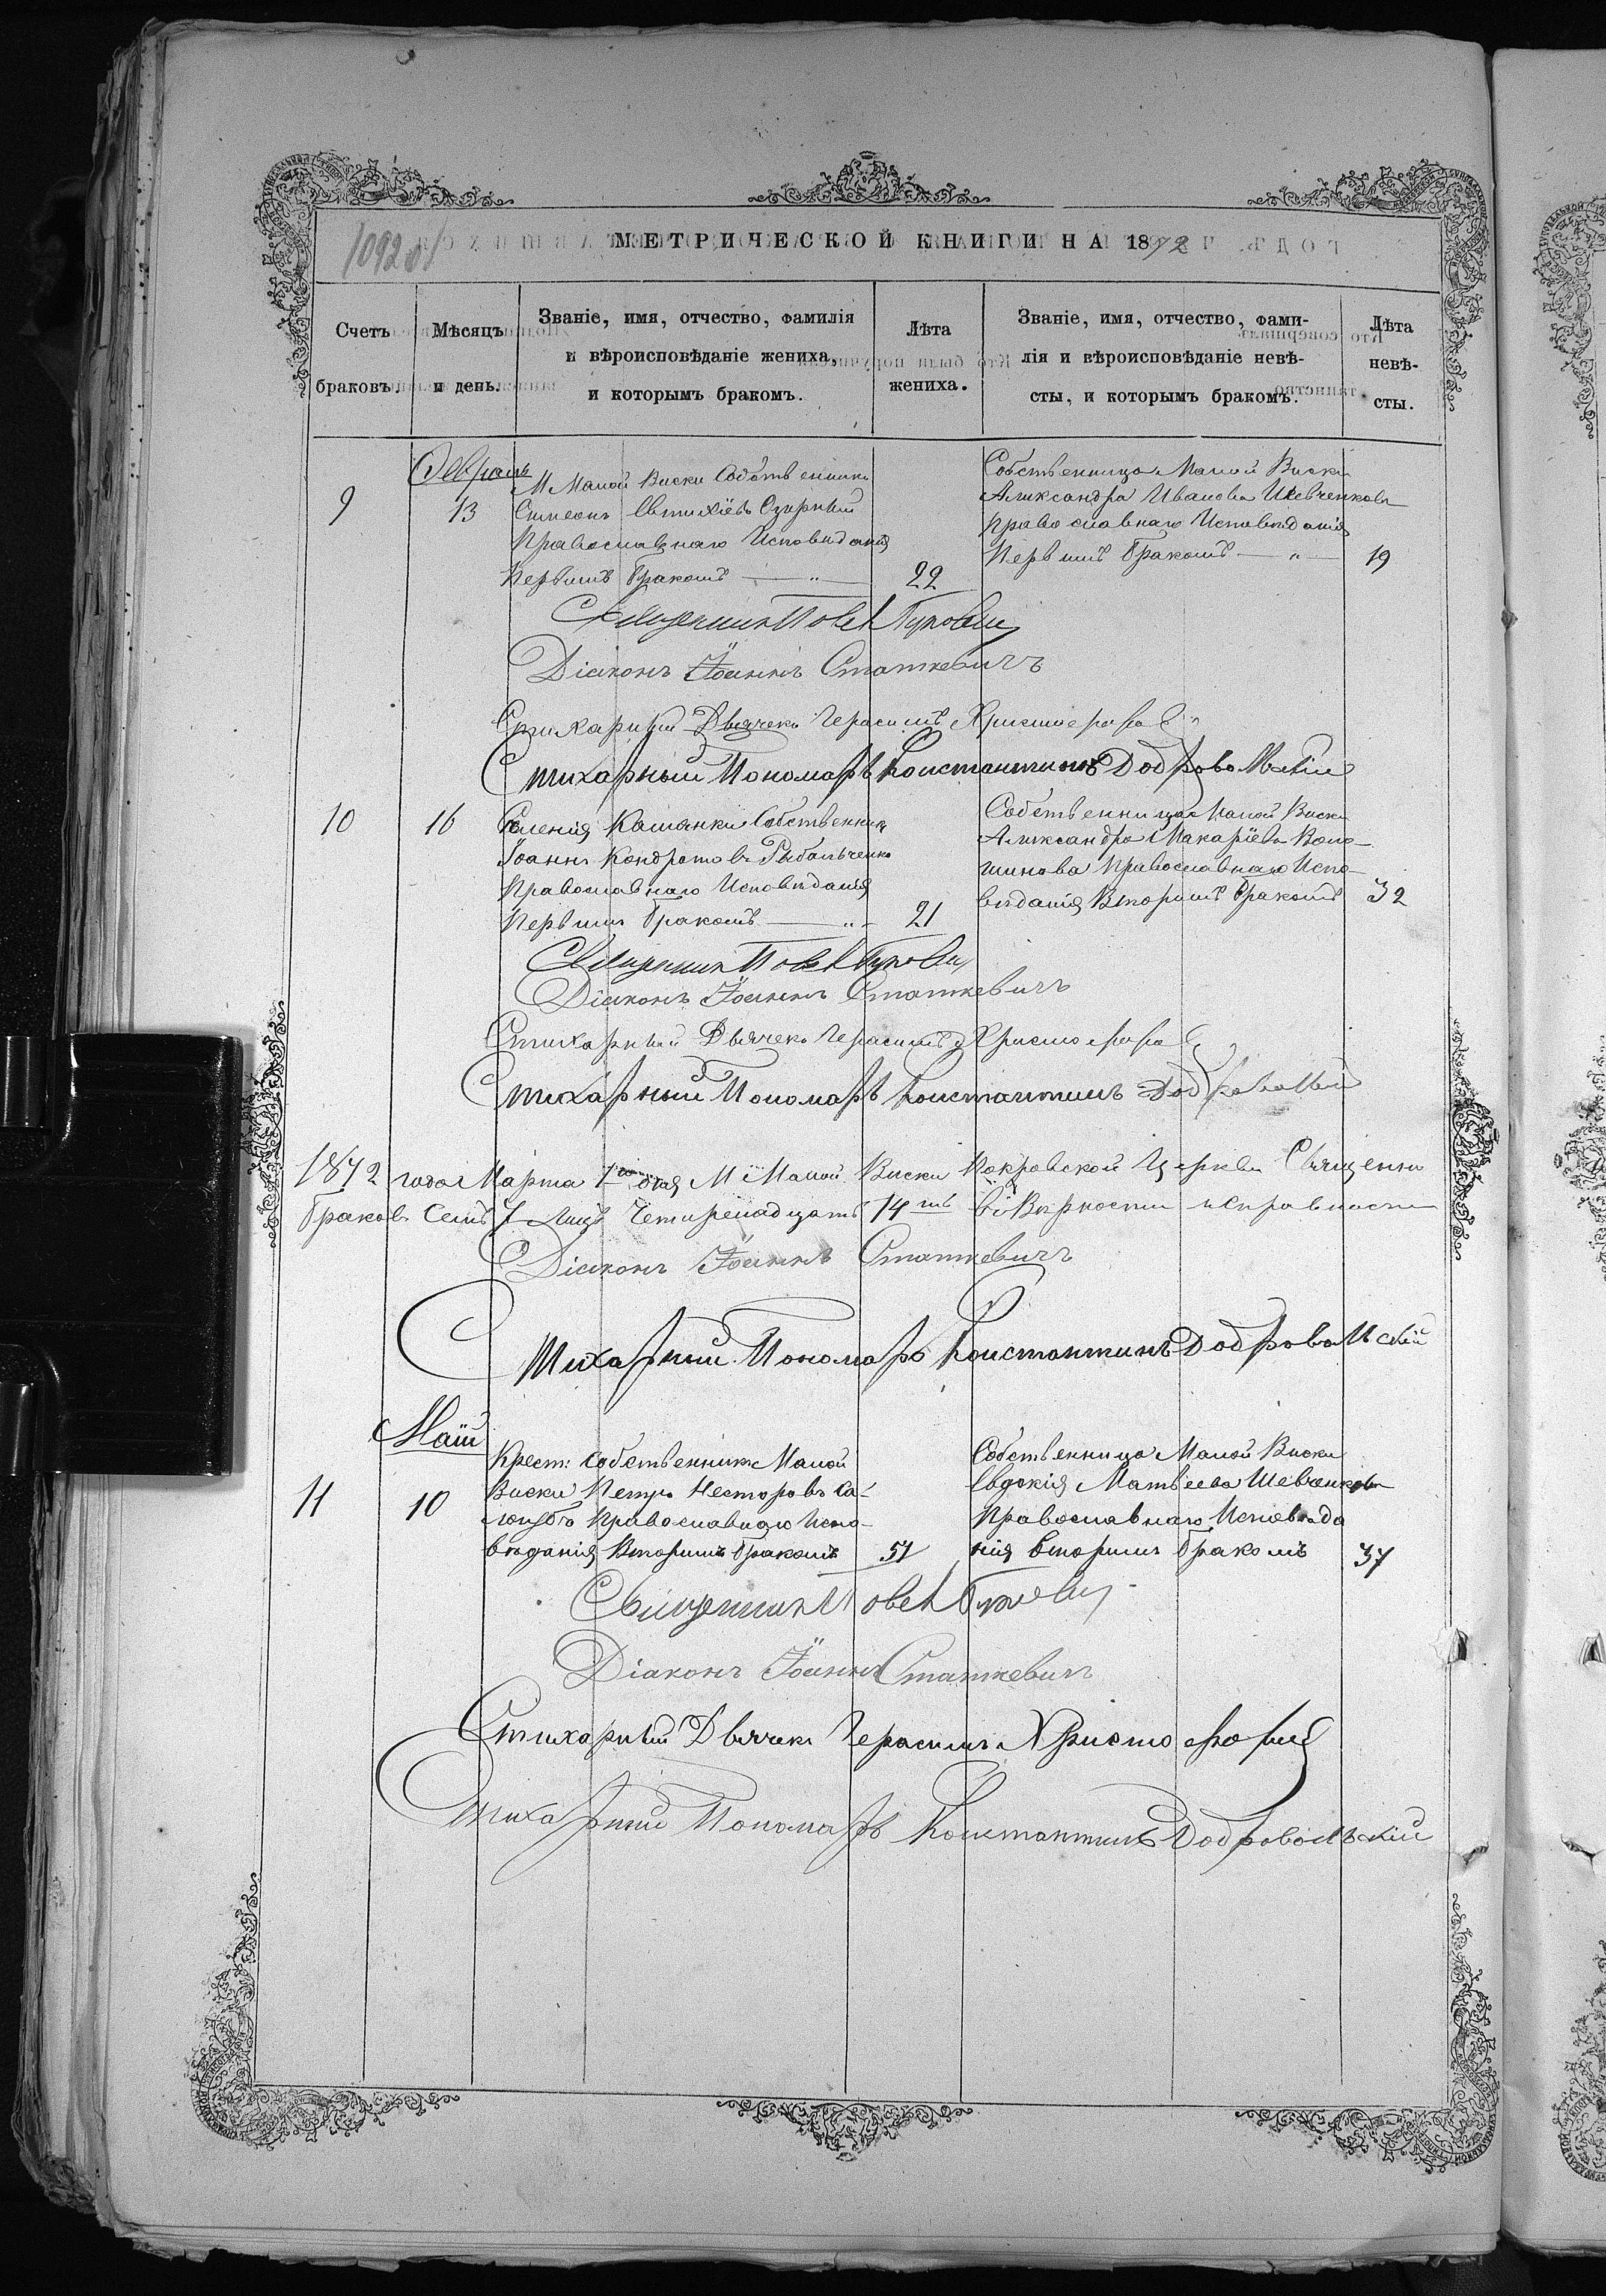 1092 об
МЕТРИЧЕСКОЙ КНИГИ НА 1872
Счетъ браковъ.
Мѣсяцъ и день.
Званіе, имя, отчество, фамилія
и вѣроисповѣданіе жениха,
и которымъ бракомъ.
Лѣта
жениха.
Званіе, имя, отчество, фами-
лія и вѣроисповѣданіе невѣ-
сты, и которымъ бракомъ.
Лѣта
невѣ-
сты.
Февраль
9
13
М Малой Виски Собственникъ
Симеонъ Евтихіевъ Озирный
Православнаго Исповиданія
Первымъ бракомъ — „ —
22
Собственница Малой Виски
Александра Иванова Шевченкова
православнаго Исповиданія
Первымъ бракомъ — „ —
19
Священникъ Павелъ
Діаконъ Іоаннъ Статкевичъ
Стихарный Дьячекъ Герасимъ
Стихарный Пономарь Константинъ Добровольскій
10
16
Селенія Собственникъ
Іоаннъ Кондратовъ Рыбальченко
Православнаго Исповиданія
Первымъ бракомъ — „ —
21
Собственница Малой Виски
Александра Макаріева Воло-
шинова Православнаго Испо-
виданія Вторымъ бракомъ
32
Священникъ Павелъ
Діаконъ Іоаннъ Статкевичъ
Стихарный Дьячекъ Герасимъ
Стихарный Пономарь Константинъ Добровольскій
1872 года Марта 1го дня М Малой Виски Покровской Церкви Священно
браковъ Семь 7 Лицъ Четырнадцать 14ть въ Вѣрности исправности
Діаконъ Іоаннъ Статкевичъ
Стихарный Пономарь Константинъ Добровольскій
Маій
11
10
Крест: собственникъ Малой
Виски Петръ Несторовъ Са-
Православнаго Испо-
вѣданія Вторымъ бракомъ
51
Собственница Малой Виски
Евдокія Матвѣева Шевченкова
Православнаго Исповѣда
нія вторымъ бракомъ
37
Священникъ Павелъ
Діаконъ Іоаннъ Статкевичъ
Стихарный Дьячекъ Герасимъ
Стихарный Пономарь Константинъ Добровольскій